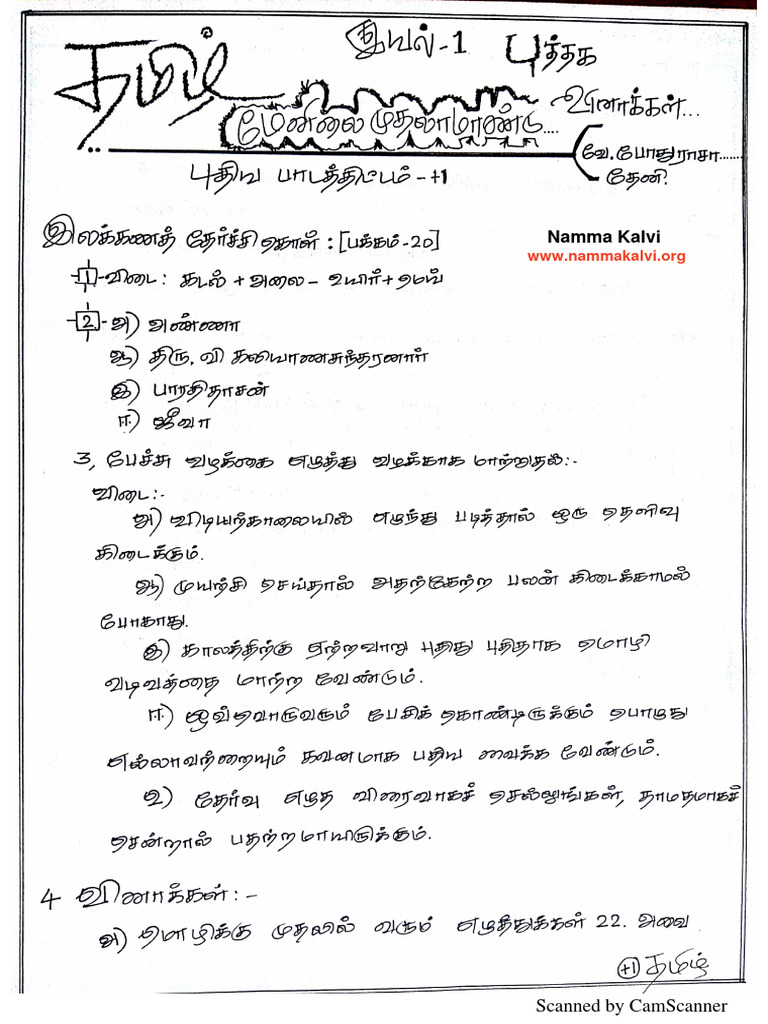 தமிழ்
இயல்-1 புத்தக
வினாக்கள்...
மேனிலை முதலாமாண்டு....
வே.போதுராசா......
தேனி.
புதிய பாடத்திட்டம்-+1
இலக்கணத் தேர்ச்சிகொள் : [பக்கம்-20]
Namma Kalvi
www.nammakalvi.org
1 - விடை : கடல் + அலை - உயிர்+மெய்
2 - அ) அண்ணா
ஆ) திரு. வி கலியாணசுந்தரனார்
இ) பாரதிதாசன்
ஈ) ஜீவா
3, பேச்சு வழக்கை எழுத்து வழக்காக மாற்றுதல்:-
விடை:-
அ) விடியற்காலையில் எழுந்து படித்தால் ஒரு தெளிவு
கிடைக்கும்.
ஆ) முயற்சி செய்தால் அதற்கேற்ற பலன் கிடைக்காமல்
போகாது.
இ) காலத்திற்கு ஏற்றவாறு புதிது புதிதாக மொழி
வடிவத்தை மாற்ற வேண்டும்.
ஈ) ஒவ்வொருவரும் பேசிக் கொண்டிருக்கும் பொழுது
எல்லாவற்றையும் கவனமாக பதிய வைக்க வேண்டும்.
உ) தேர்வு எழுத விரைவாகச் செல்லுங்கள், தாமதமாகச்
சென்றால் பதற்றமாயிடுக்கும்.
4 வினாக்கள் :-
அ) மொழிக்கு முதலில் வரும் எழுத்துக்கள் 22. அவை
+1 தமிழ்
Scanned by CamScanner